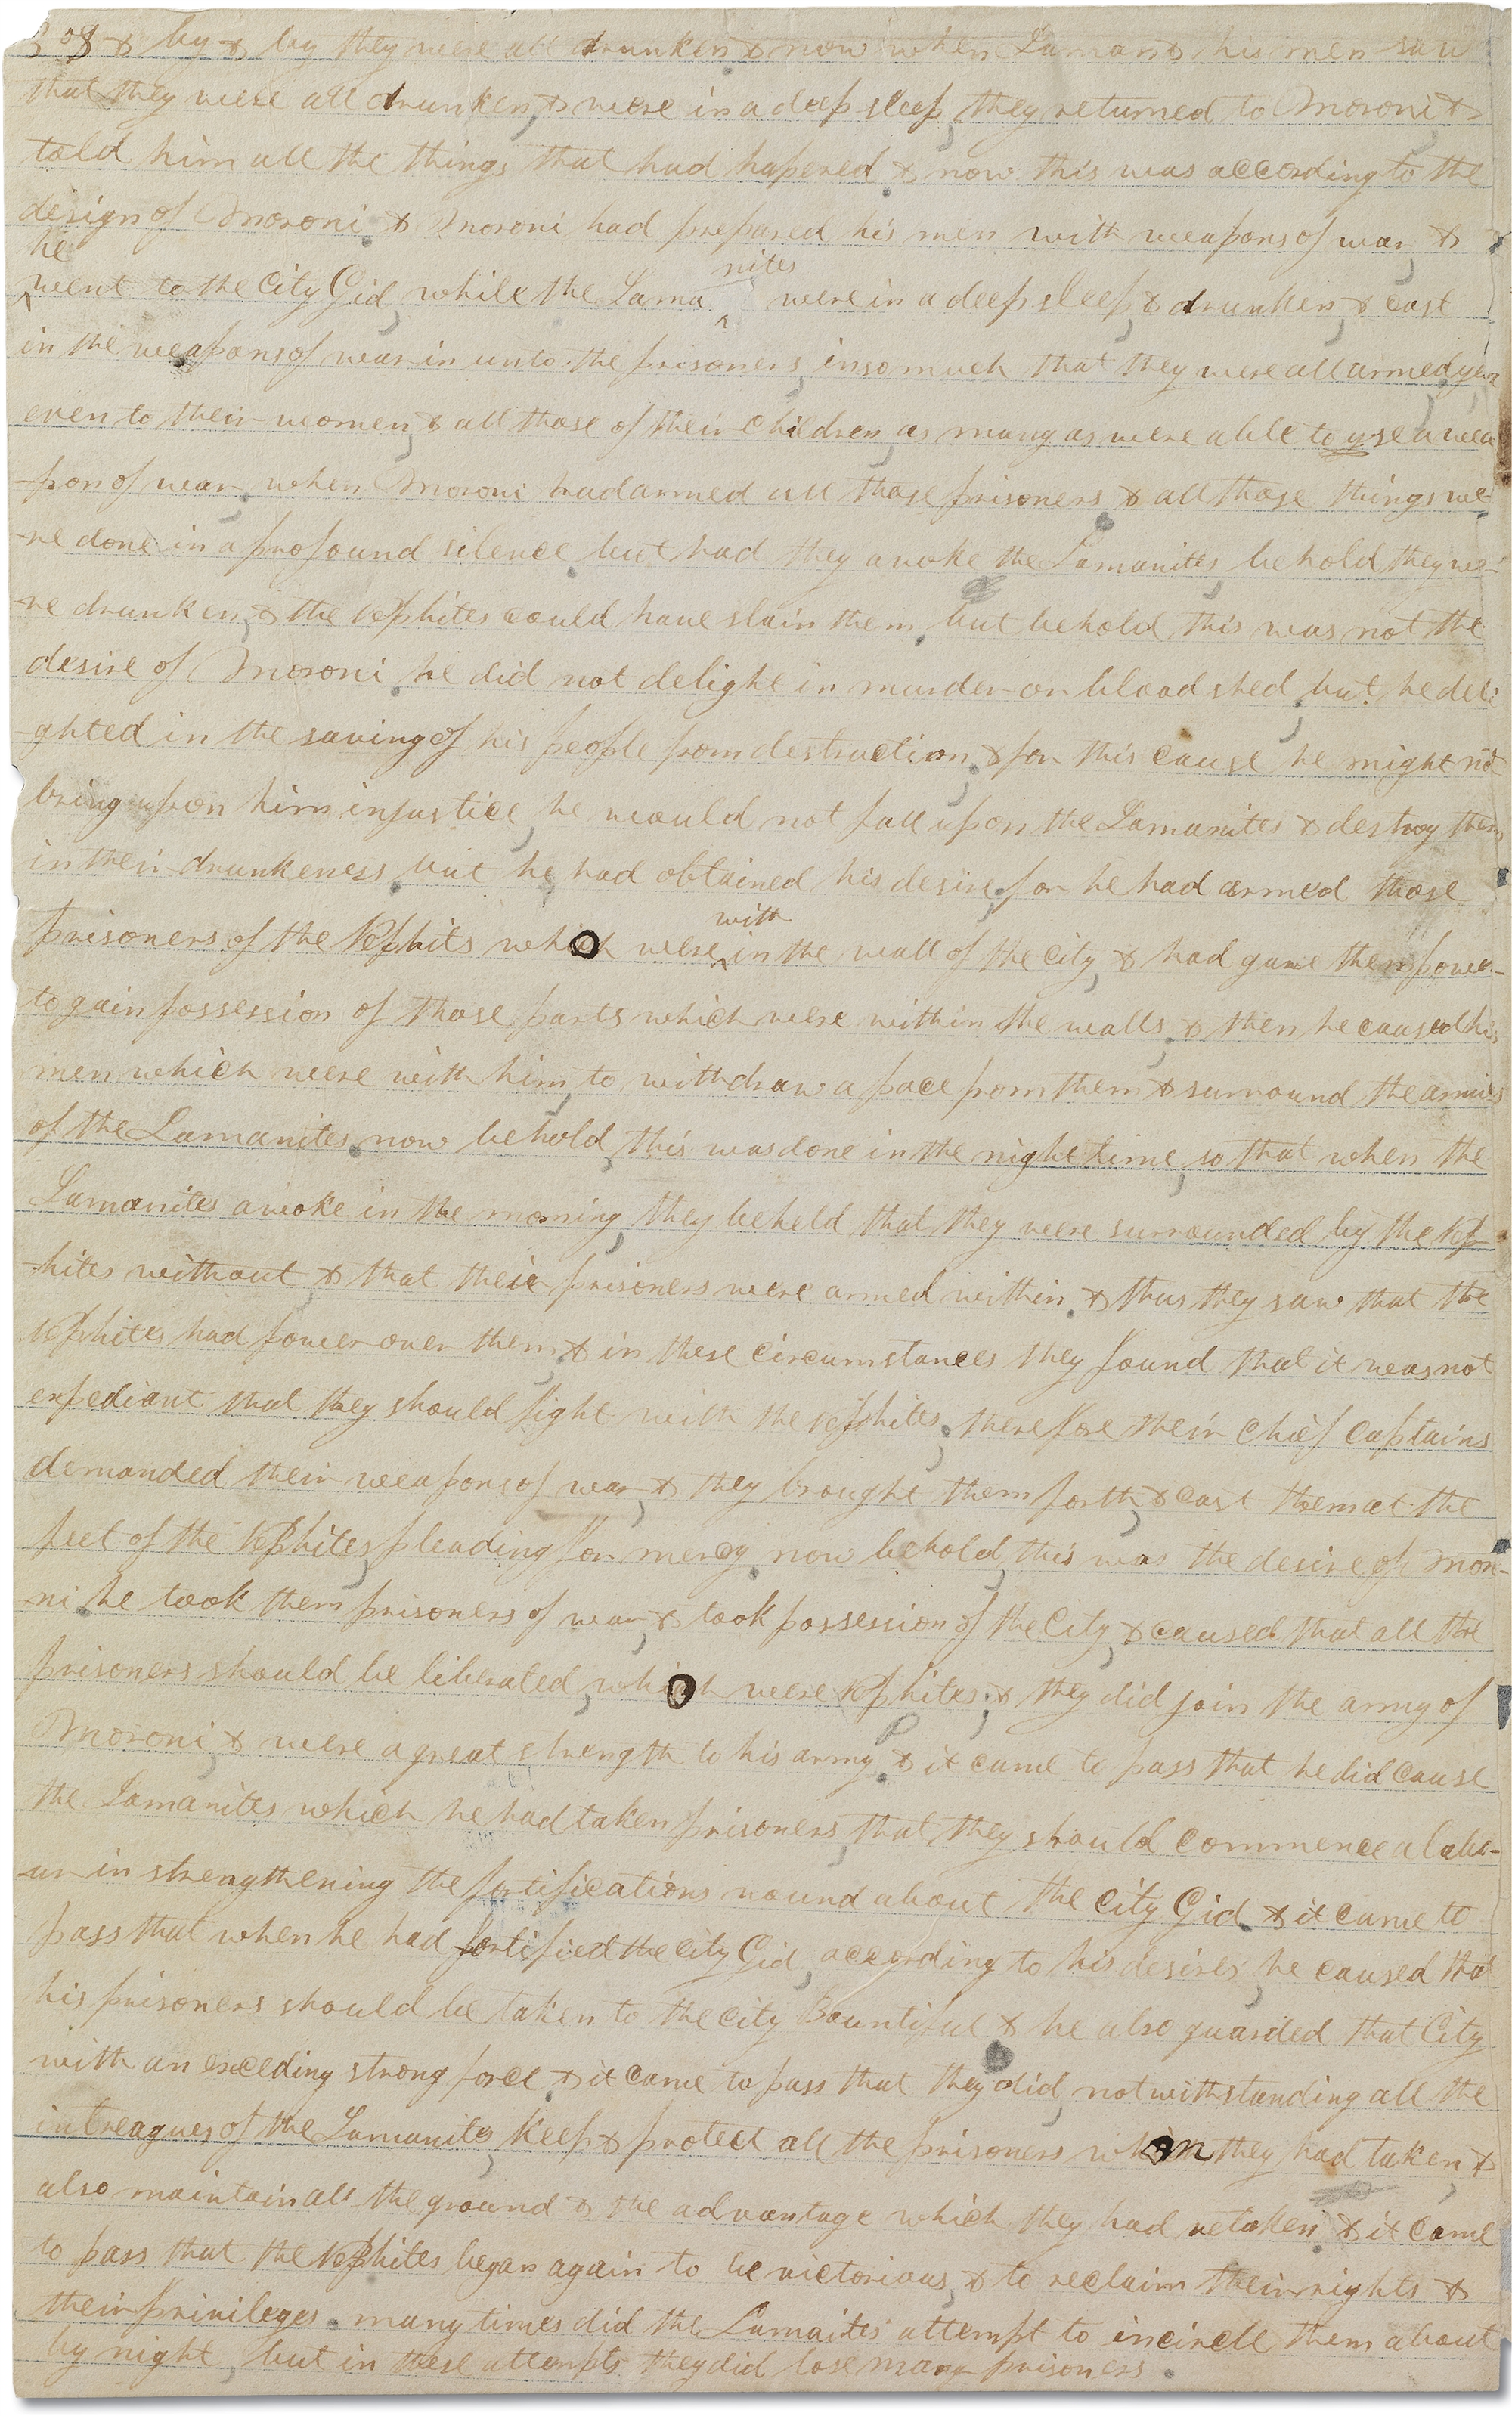 308 & by & by they were all drunken & now when Laman & his men saw
that they were all drunken, & were in a deep sleep, they returned to Moroni &
told him all the things that had hapened. & now this was according to the
design of Moroni. & Moroni had prepared his men with weapons of war, &
he
went to the City Gid, while the Lama^nites were in a deep sleep, & drunken, & cast
in the weapons of war in unto the prisoners, insomuch that they were all armed, yea
even to their women, & all those of their children, as many as were able to use a wea
-pon of war. when Moroni had armed all those prisoners & all those things we
-re done in a profound silence. but had they awoke the Lamanites, behold they we-
-re drunken, & the Nephites could have slain them. but behold this was not the
desire of Moroni. he did not delight in murder or bloodshed, but he deli
-ghted in the saving of his people from destruction, & for this cause he might not
bring upon him injustice, he would not fall upon the Lamanites & destroy them
in their drunkeness. but he had obtained his desire, for he had armed those
prisoners of the Nephits who were ^with in the wall of the city, & had gave them power
to gain possession of those parts which were within the walls. & then he caused his
men which were with him, to withdraw a pace from them & surround the armies
of the Lamanites. now behold, this was done in the night time, so that when the
Lamanites awoke in the morning, they beheld that they were surrounded by the Nep
-hites without & that their prisoners were armed within. & thus they saw that the
Nephites had power over them, & in these circumstances they found that it was not
expediant that they should fight with the Nephites. therefore their chief captains
demanded their weapons of war, & they brought them forth, & cast them at the
feet of the Nephites, pleading for mercy. now behold, this was the desire of Moro-
ni. he took them prisoners of war, & took possession of the City, & caused that all the
prisoners should be liberated, who were Nephites, & they did join the army of
Moroni, & were a great strength to his army. & it came to pass that he did cause
the Lamanites which he had taken prisoners, that they should commence a labo-
-ur in strengthening the fortifications round about the City Gid. & it came to
pass that when he had fortified the City Gid, according to his desires, he caused that
his prisoners should be taken to the City Bountiful & he also guarded that City
with an exceding strong force. & it came to pass that they did, notwithstanding all the
intreagues of the Lamanites, keep & protect all the prisoners whom they had taken, &
also maintain all the ground & the advantage which they had retaken. & it came
to pass that the Nephites began again to be victorious, & to reclaim their rights &
their privileges. many times did the Lamaites attempt to incircle them about
by night, but in these attempts they did lose many prisoners.